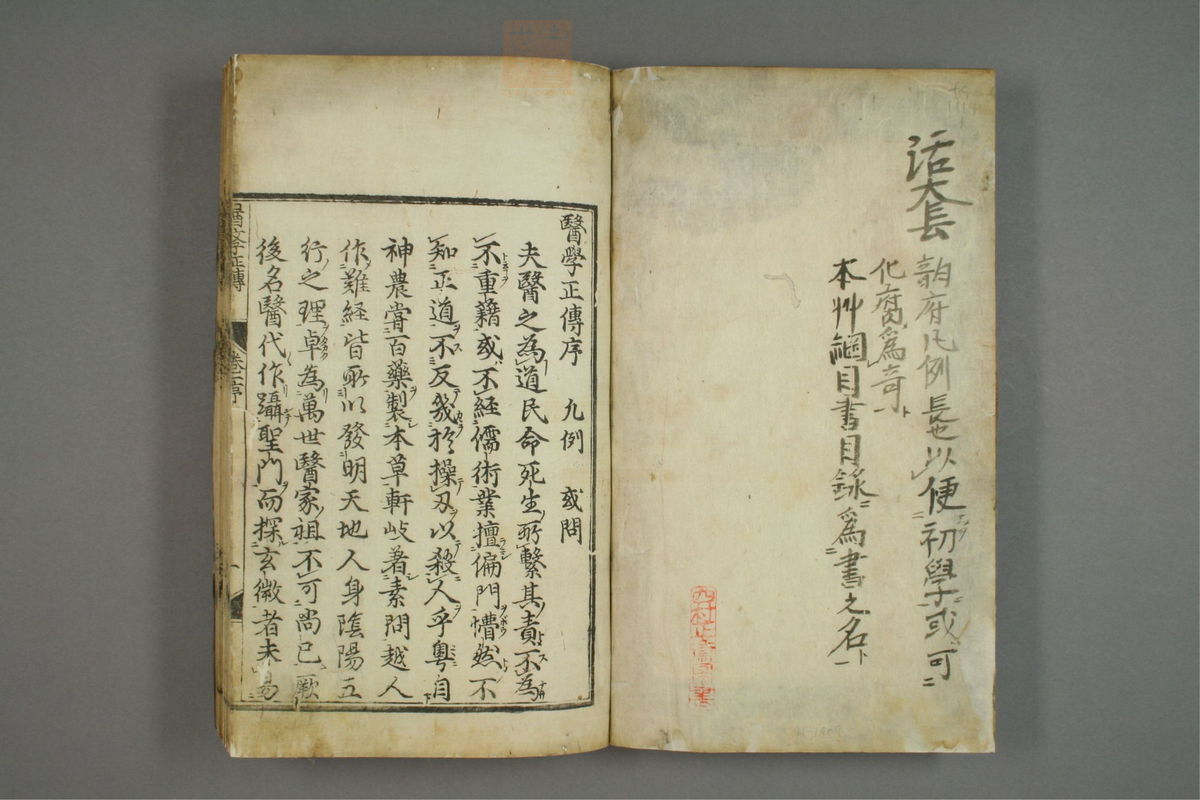 活套
韵府凡例長也以便初學或可
化腐爲奇
本艸綱目書目錄爲書之名
醫學正傳序 凡例 或問
夫醫之為道民命死生所繫其責不為
不重籍或不經儒術業擅偏門懵然不
知正道不反幾於操刃以殺人乎粵自
神農嘗百藥製本草軒岐著素問越人
作難経皆所以發明天地人身陰陽五
行之理卓為萬世醫家祖不可尚已厥
後名醫代作躡聖門而探玄微者未易
醫学正傳 卷之序 一